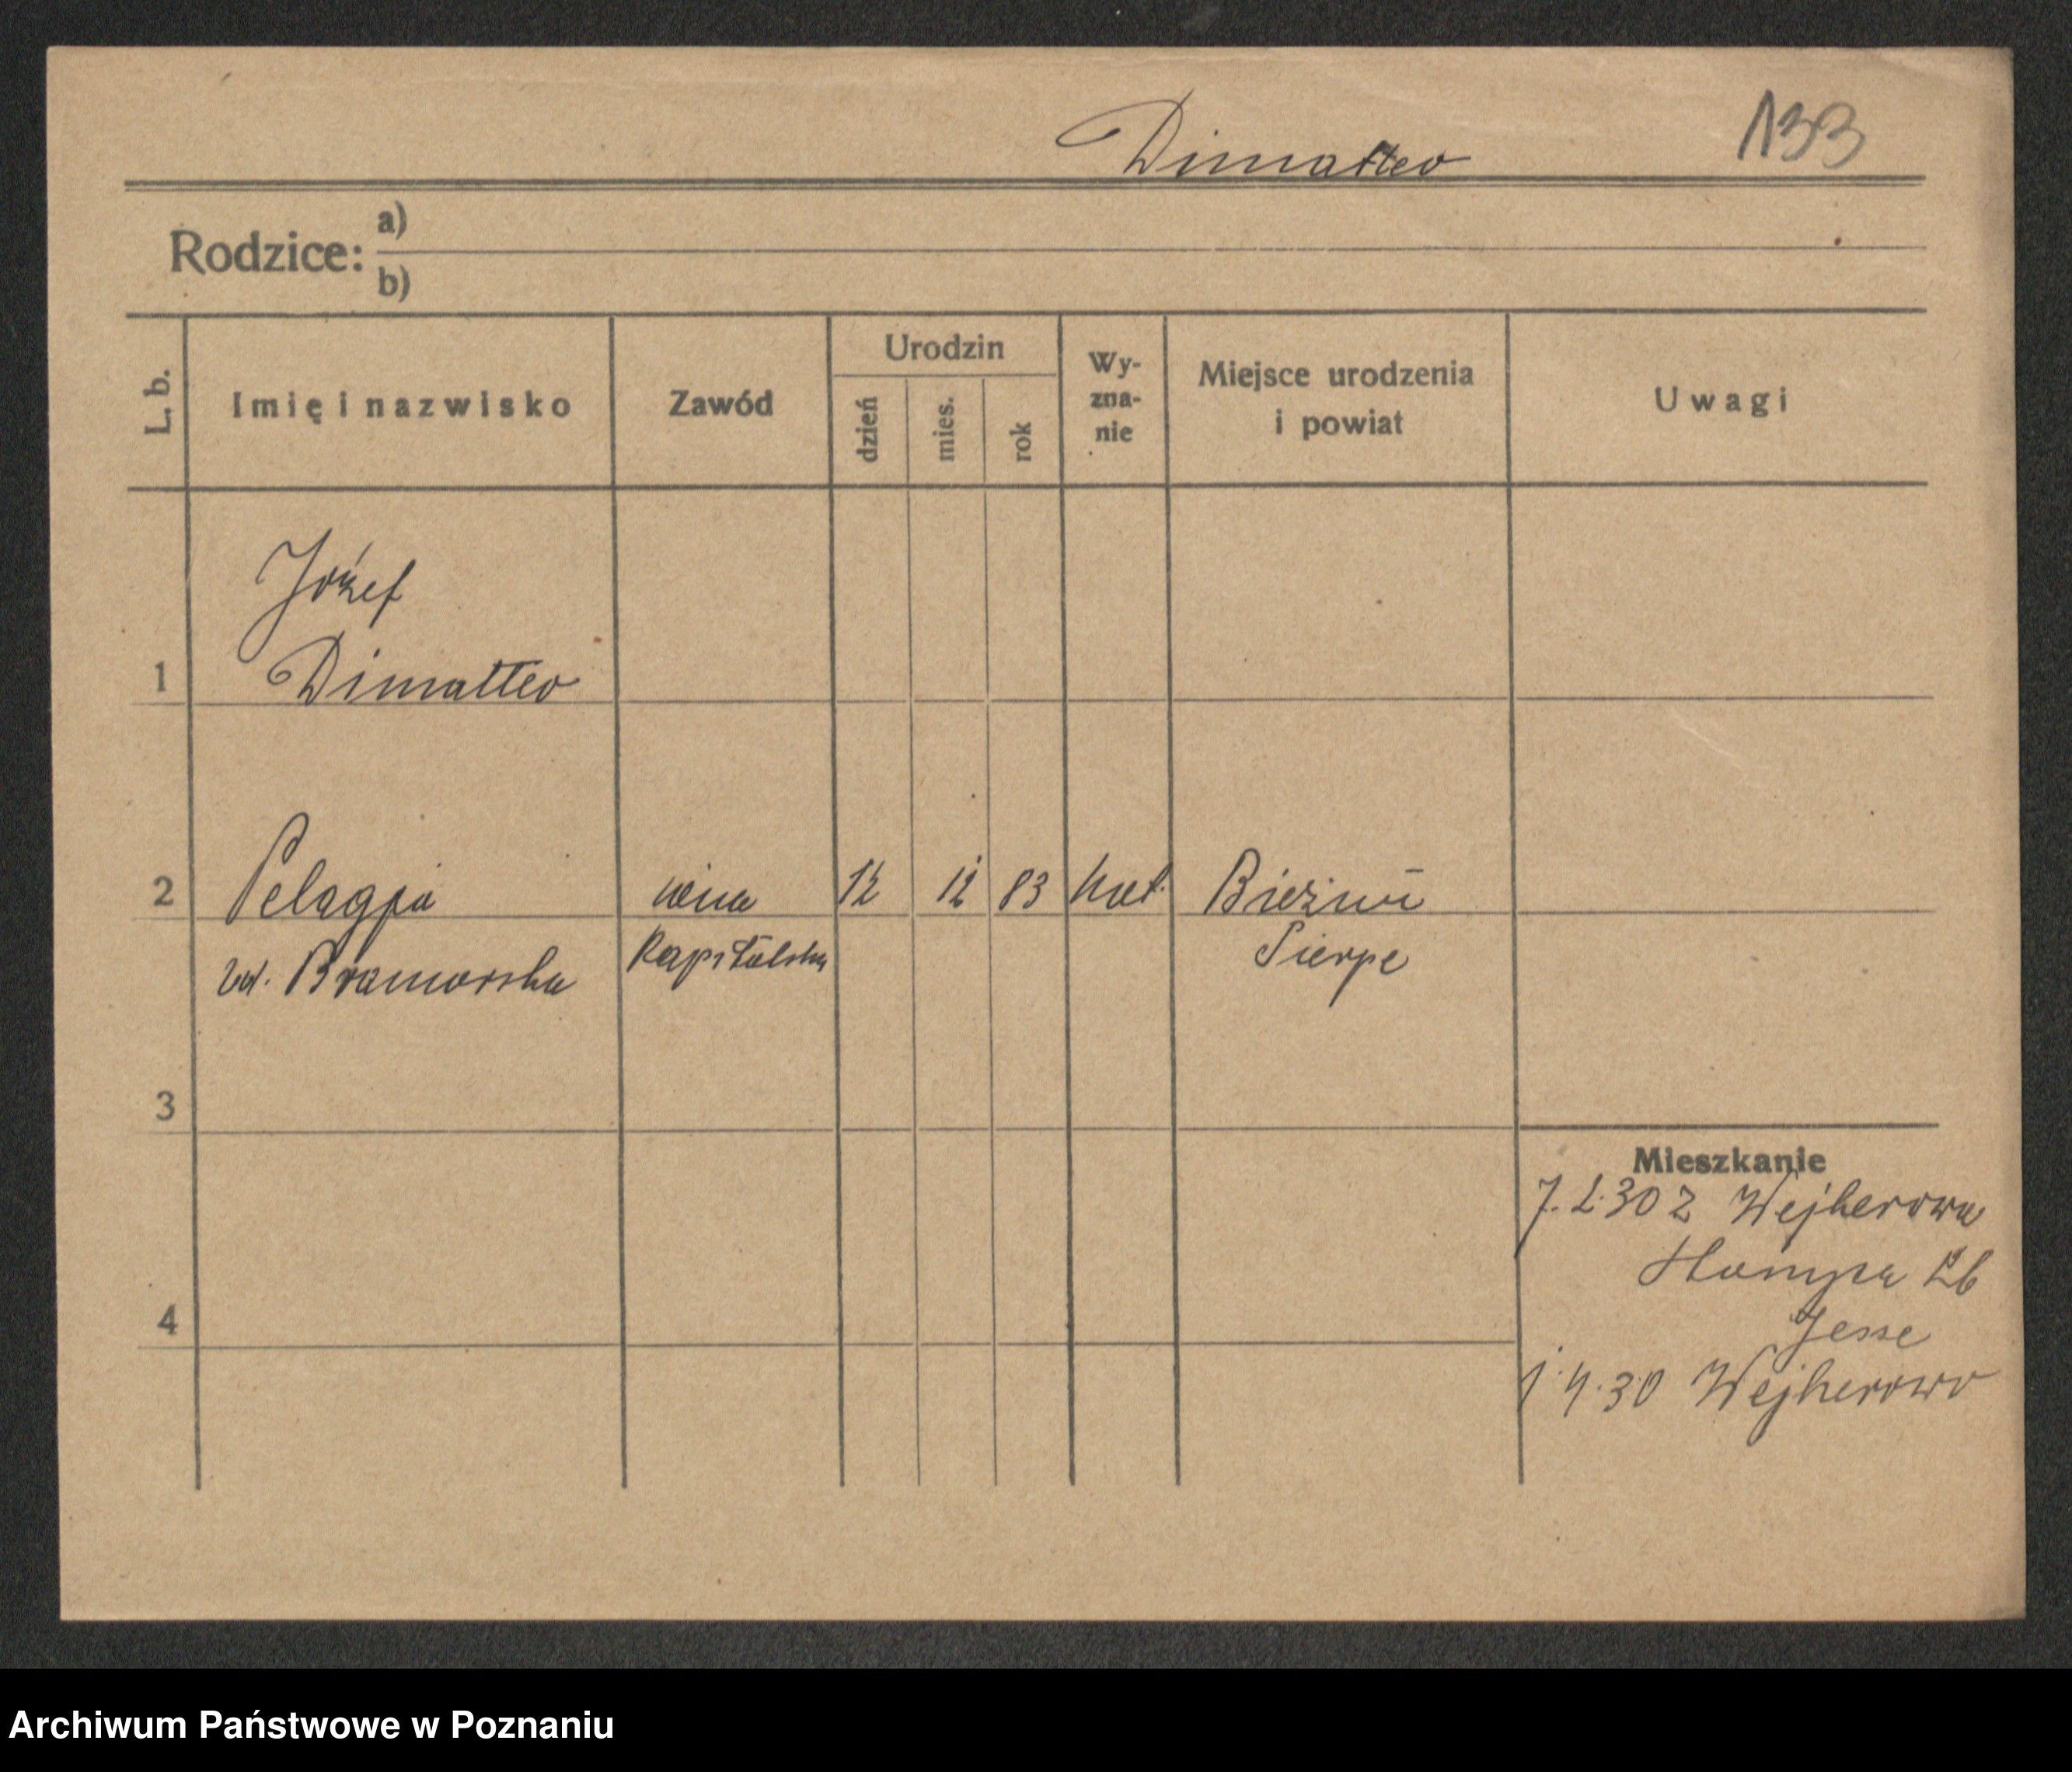 Dimatteo
133
Rodzice: a)
b)
L. b.
Imię i nazwisko
Zawód
Urodzin
dzień
mies.
rok
Wy-
zna-
nie
Miejsce urodzenia
i powiat
Uwagi
Józef
1 Dimatteo
2 Pelagja 12 12 83 kat. Bieżuń
Sierpc
3
Mieszkanie
7.2.30 z Wejherowa
26
Jesse
4
1.4.30 Wejherowo
Archiwum Państwowe w Poznaniu